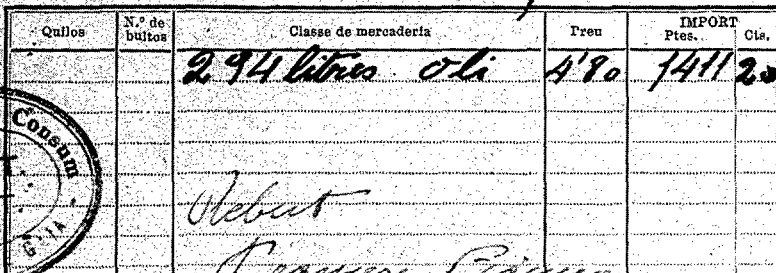 Quilos N.º de bultos Classe de mercaderia Preu IMPORT Ptes. Cts.
294 litres oli 4'80 1411 20
Consum
Rebut